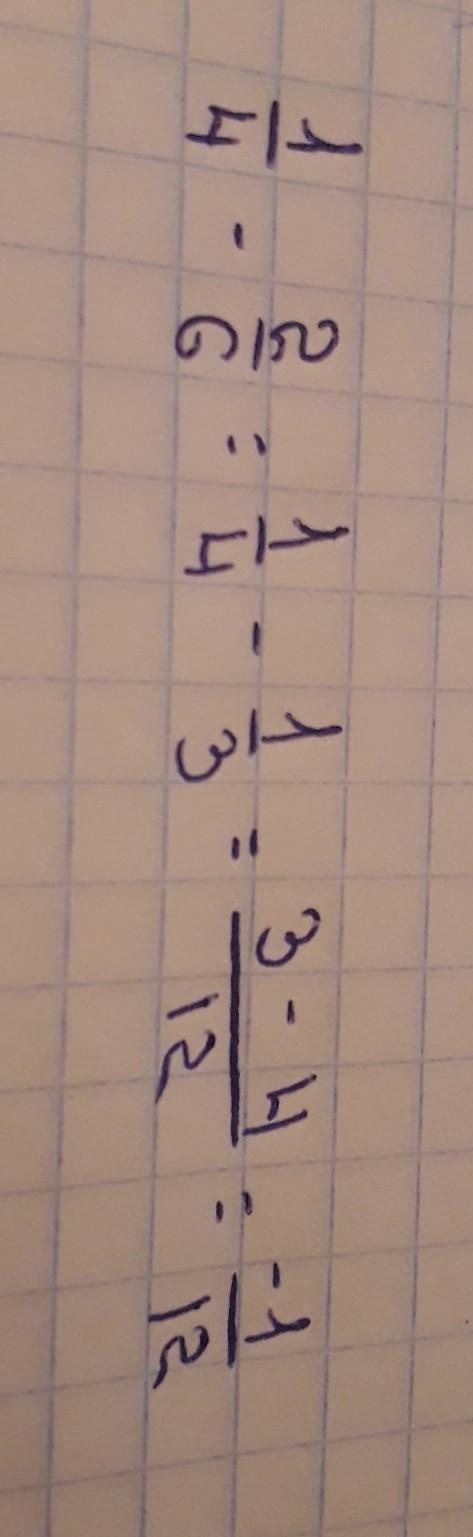 1/4 - 2/6 = 1/4 - 1/3 = 3-4/12 = -1/12